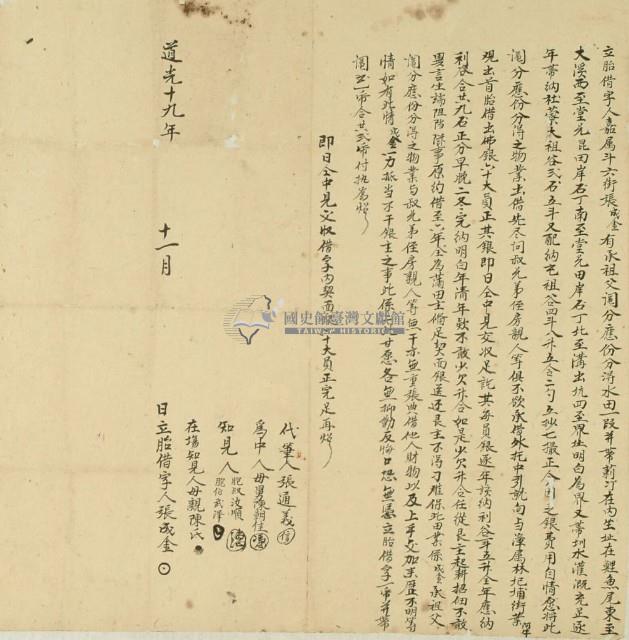 立胎借字人嘉屬斗六街張成金有承祖父鬮分應份分得水田一段并帶新汀在內坐址在鯉魚尾東至
大溪西至堂兄昆田岸石丁南至堂兄田岸石丁北至溝出坑四至界址明白為界又帶圳水灌溉充足逐
年帶納杜蒙夫祖谷弍石五斗又配納屯祖谷四斗八升五合二勺五抄七撮正今因乏銀費用自情愿將此
鬮分應份分得之物業出借先尽問叔兄弟侄房親人等俱不欲承借外托中引就向与漳屬林圯埔街葉
观出首胎借出佛銀六十大員正其銀即日仝中見交收足訖其每員銀逐年該納利谷一斗五升全年應納
利谷合共九石正分早晚二冬完納明白年清年款不敢少欠升合如是少欠升合任從艮主起耕招佃不敢
異言生端阻防滋事原約借至六年全為滿田主俻足契面銀送还艮主不得刁难保此田業係成金承祖父
鬮分應份分得之物業与叔兄弟侄房親人等無干亦無重張典借他人財物以及上手交加來歷不明等
情如有此情成金一力抵当不干銀主之事此係二比甘愿各無抑勒反悔口恐無憑立胎借字一帋并帶
鬮書一帋合共弍帋付执為炤
即日仝中見交收借字內契面銀六十大員正完足再炤
代筆人張通義
為中人母舅陳朝佳
知見人胞叔汝順
胞伯武澤
在塲知見人母親陳氏
道光十九年 十一月 日立胎借字人張成金
國史館臺灣文獻館
TAIWAN HISTORICA